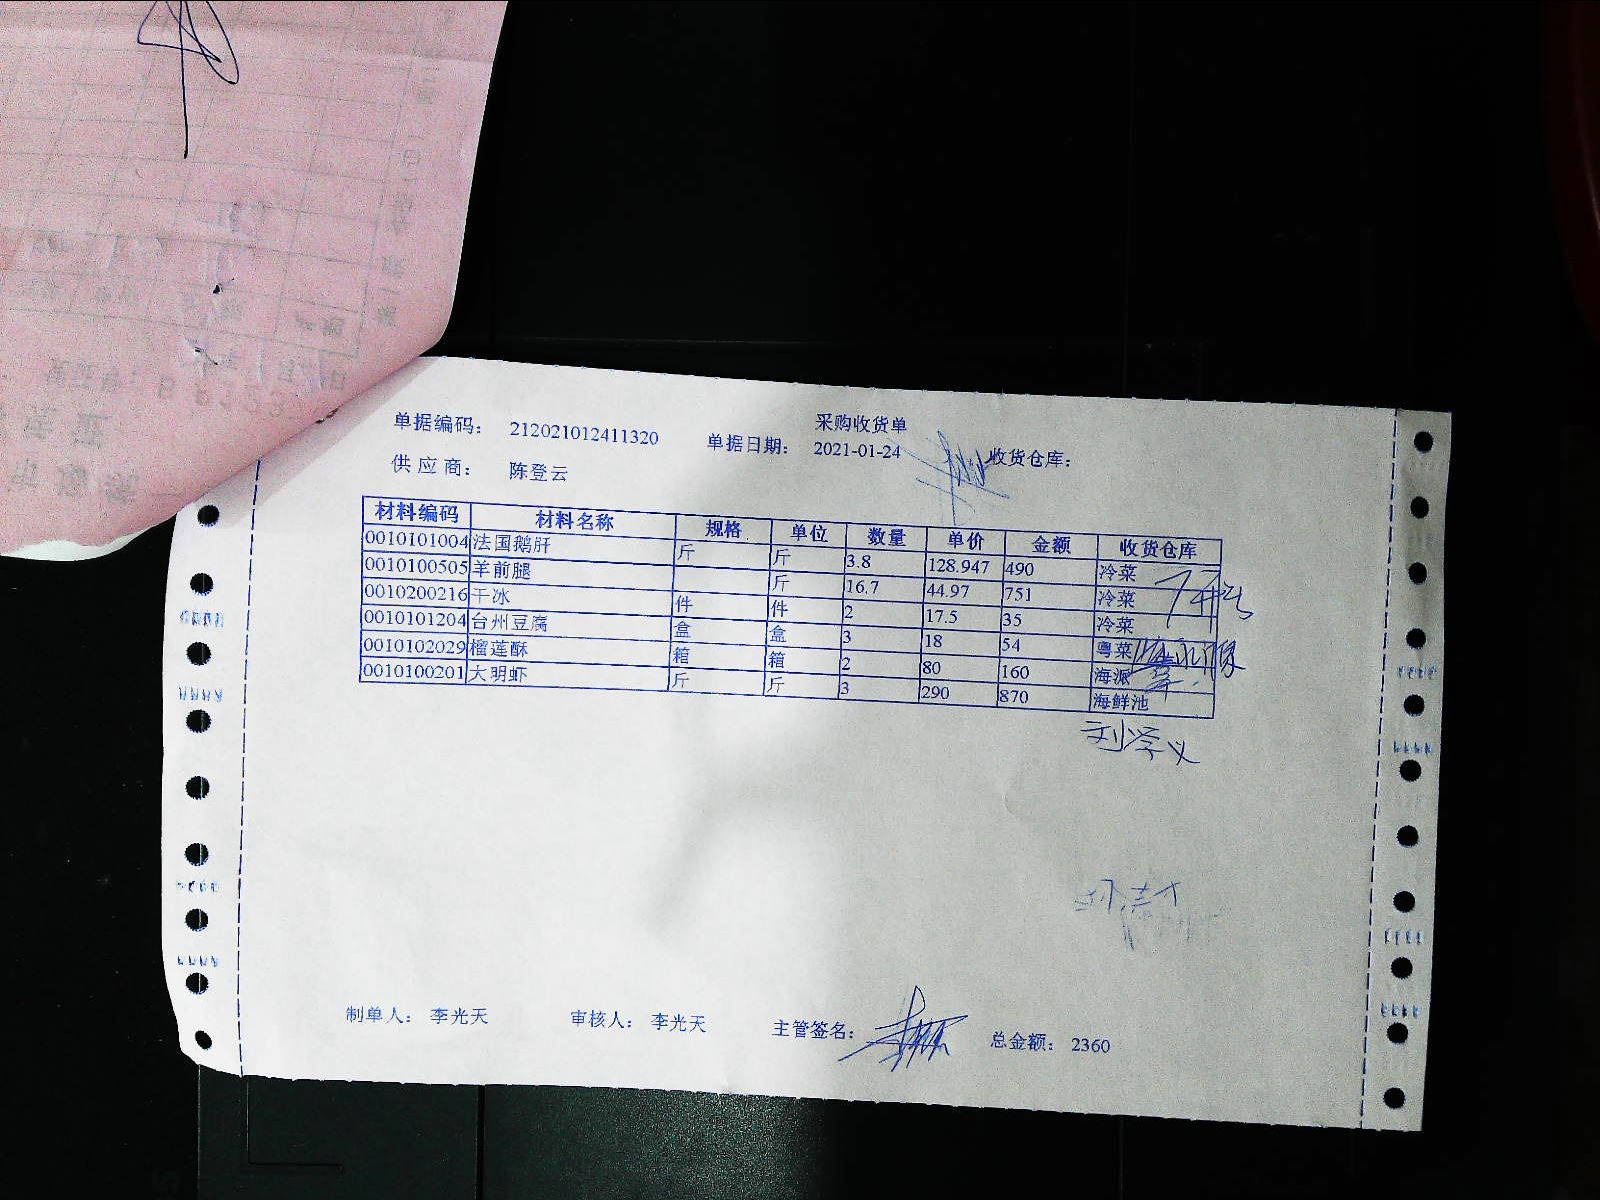 采购收货单
单据编码： 212021012411320 单据日期： 2021-01-24 收货仓库：
供应商： 陈登云
材料编码 材料名称 规格 单位 数量 单价 金额 收货仓库
0010101004 法国鹅肝 斤 斤 3.8 128.947 490 冷菜
0010100505 羊前腿 斤 16.7 44.97 751 冷菜
0010200216 干冰 件 件 2 17.5 35 冷菜
0010101204 台州豆腐 盒 盒 3 18 54 粤菜
0010102029 榴莲酥 箱 箱 2 80 160 海派
0010100201 大明虾 斤 斤 3 290 870 海鲜池
刘学义
制单人： 李光天 审核人： 李光天 主管签名： 总金额： 2360